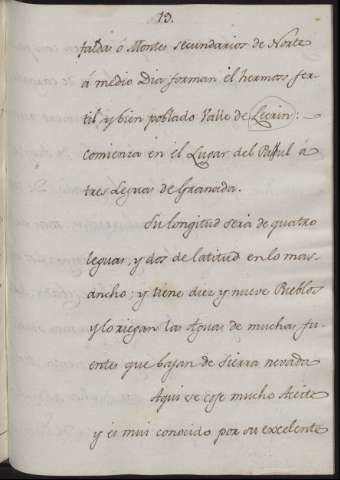 13.
faldas ó Montes secundarios de Norte
á medio Dia forman el hermoso fer-
til y bien poblado Valle de Lecrin:
comienza en el Lugar del Padul á
tres Leguas de Granada.
Su longitud será de quatro
leguas, y dos de latitud en lo mas
ancho; y tiene diez y nueve Pueblos
y lo riegan las Aguas de muchas fu-
entes que bajan de Sierra nevada
Aqui se coje mucho Aceite
y es mui conocido por su excelente